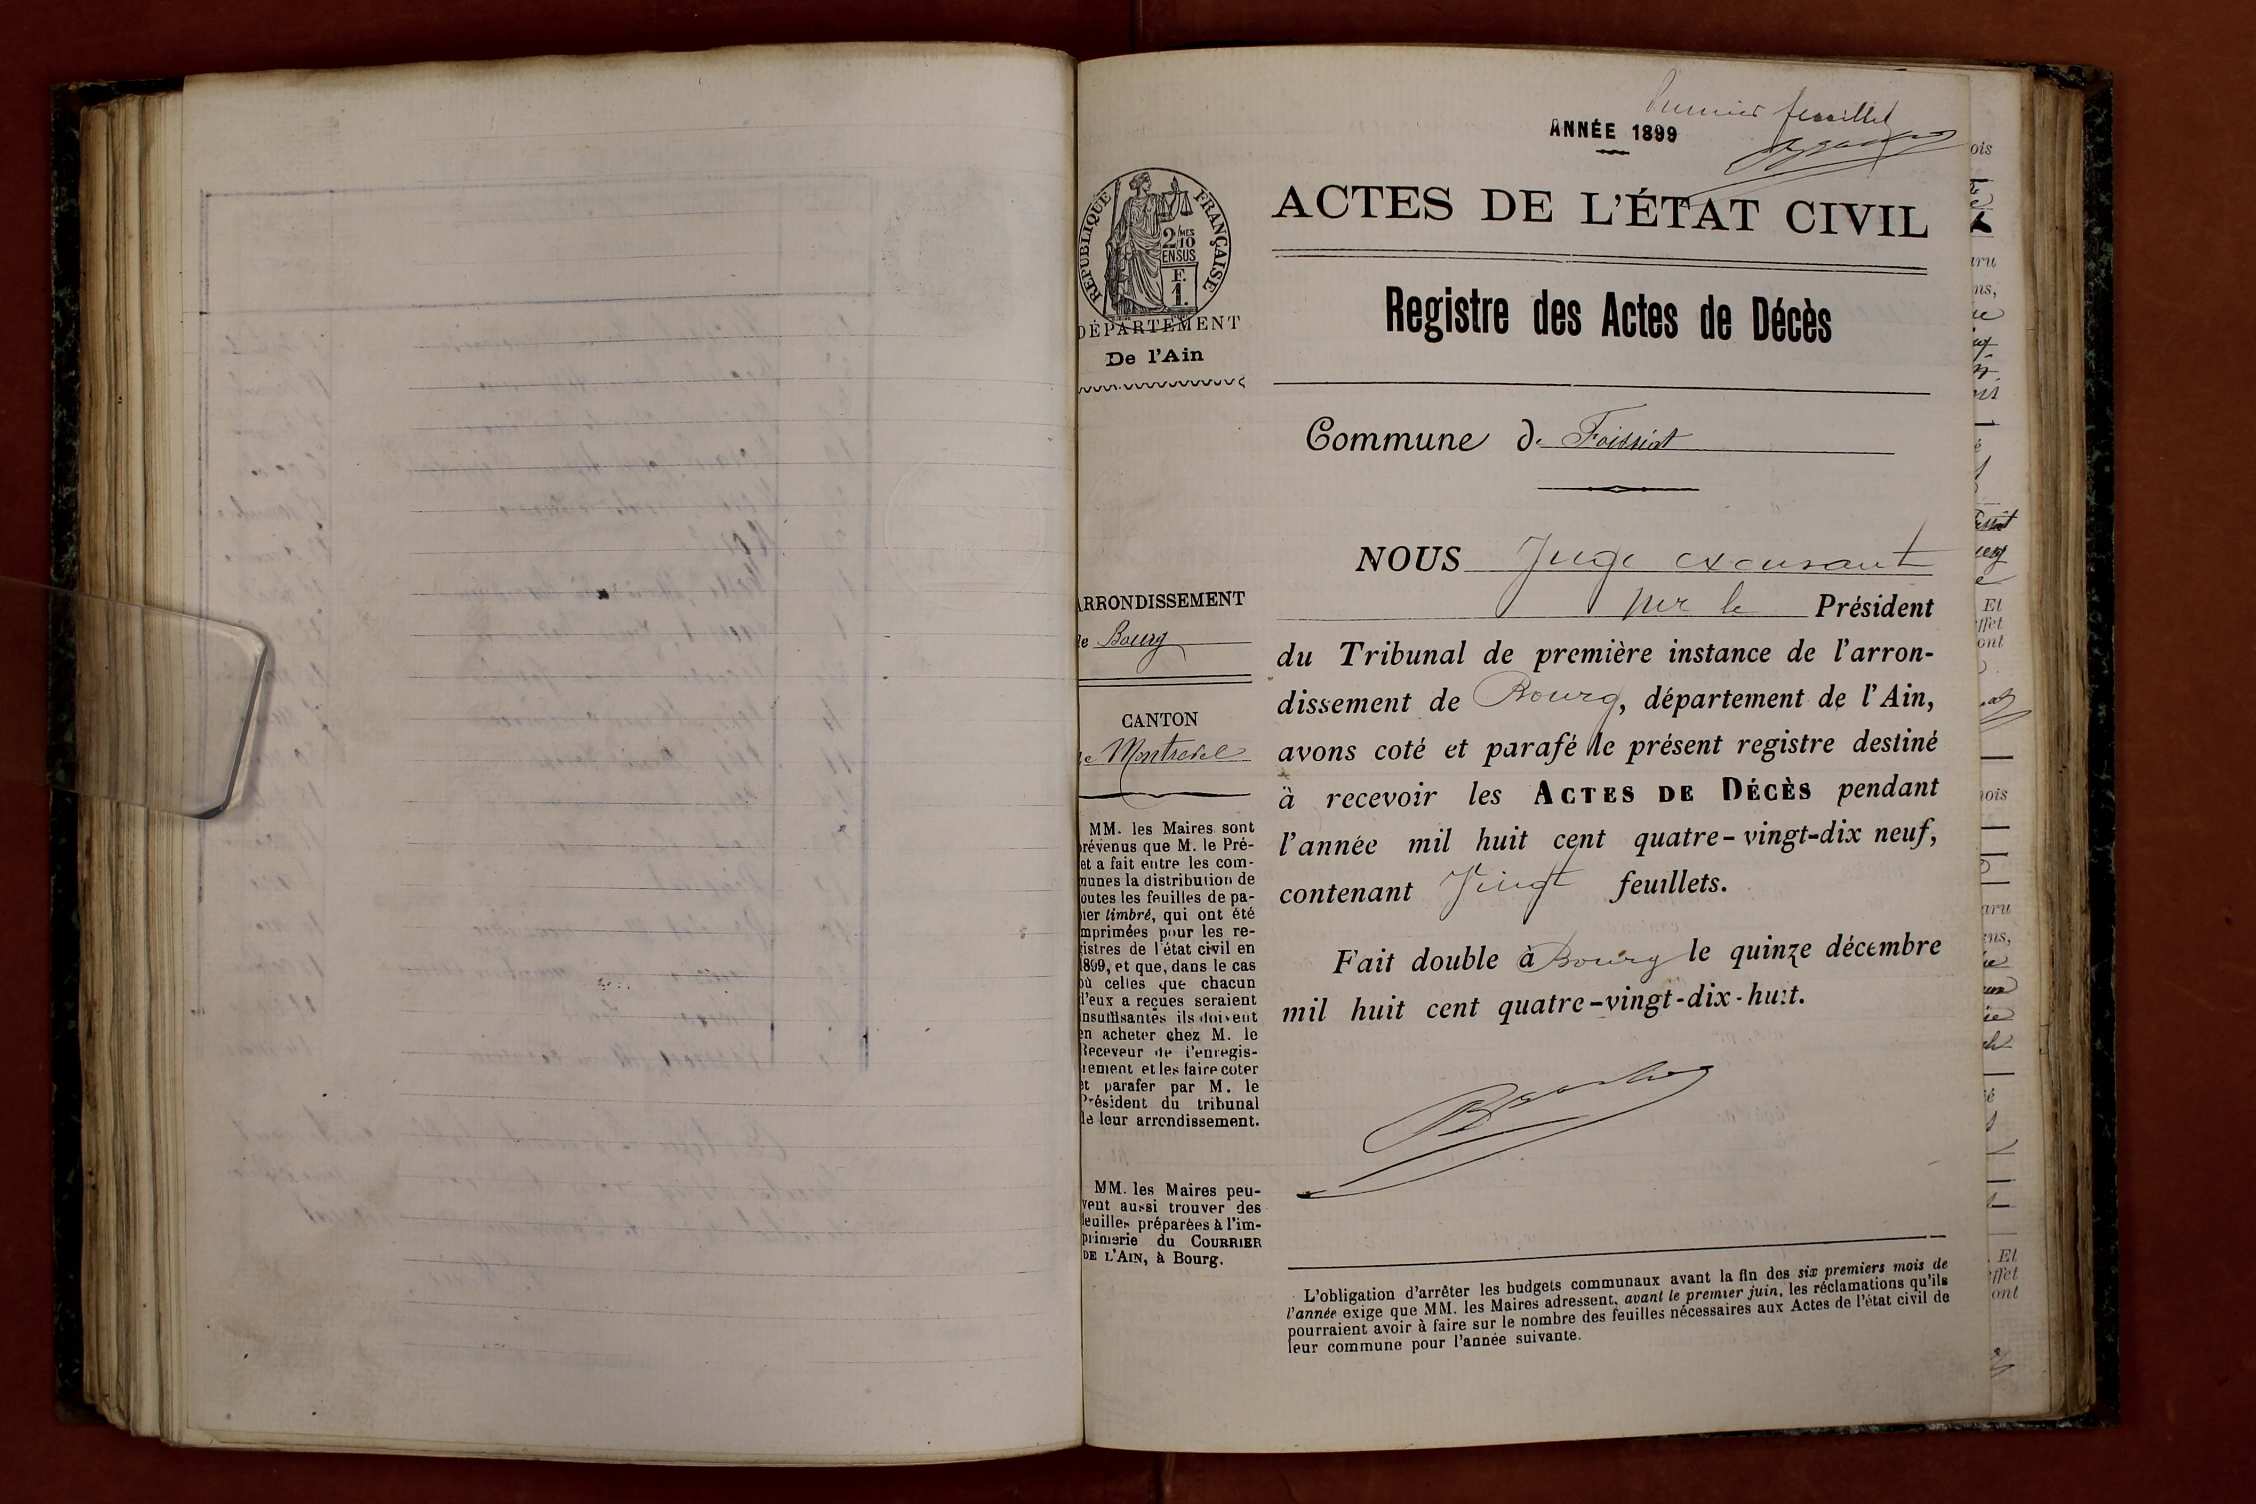 Premier feuillet
ANNÉE 1899
RÉPUBLIQUE FRANÇAISE
2/10 MES
EN SUS
F.
1.
DÉPARTEMENT
De l'Ain
ACTES DE L'ÉTAT CIVIL
Registre des Actes de Décès
Commune de Foissiat
ARRONDISSEMENT
de Bourg
CANTON
de Montrevel
MM. les Maires sont
prévenus que M. le Pré-
et a fait entre les com-
munes la distribution de
toutes les feuilles de pa-
pier timbré, qui ont été
imprimées pour les re-
gistres de l'état civil en
1899, et que, dans le cas
où celles que chacun
d'eux a reçues seraient
insuffisantes ils doivent
en acheter chez M. le
Receveur de l'enregis-
trement et les faire coter
et parafer par M. le
Président du tribunal
de leur arrondissement.
MM. les Maires peu-
vent aussi trouver des
feuilles préparées à l'im-
primerie du COURRIER
DE L'AIN, à Bourg.
NOUS Juge excusant
Mr le Président
du Tribunal de première instance de l'arron-
dissement de Bourg, département de l'Ain,
avons coté et parafé le présent registre destiné
à recevoir les ACTES DE DÉCÈS pendant
l'année mil huit cent quatre-vingt-dix neuf,
contenant Vingt feuillets.
Fait double à Bourg le quinze décembre
mil huit cent quatre-vingt-dix-huit.
L'obligation d'arrêter les budgets communaux avant la fin des six premiers mois de
l'année exige que MM. les Maires adressent, avant le premier juin, les réclamations qu'ils
pourraient avoir à faire sur le nombre des feuilles nécessaires aux Actes de l'état civil de
leur commune pour l'année suivante.